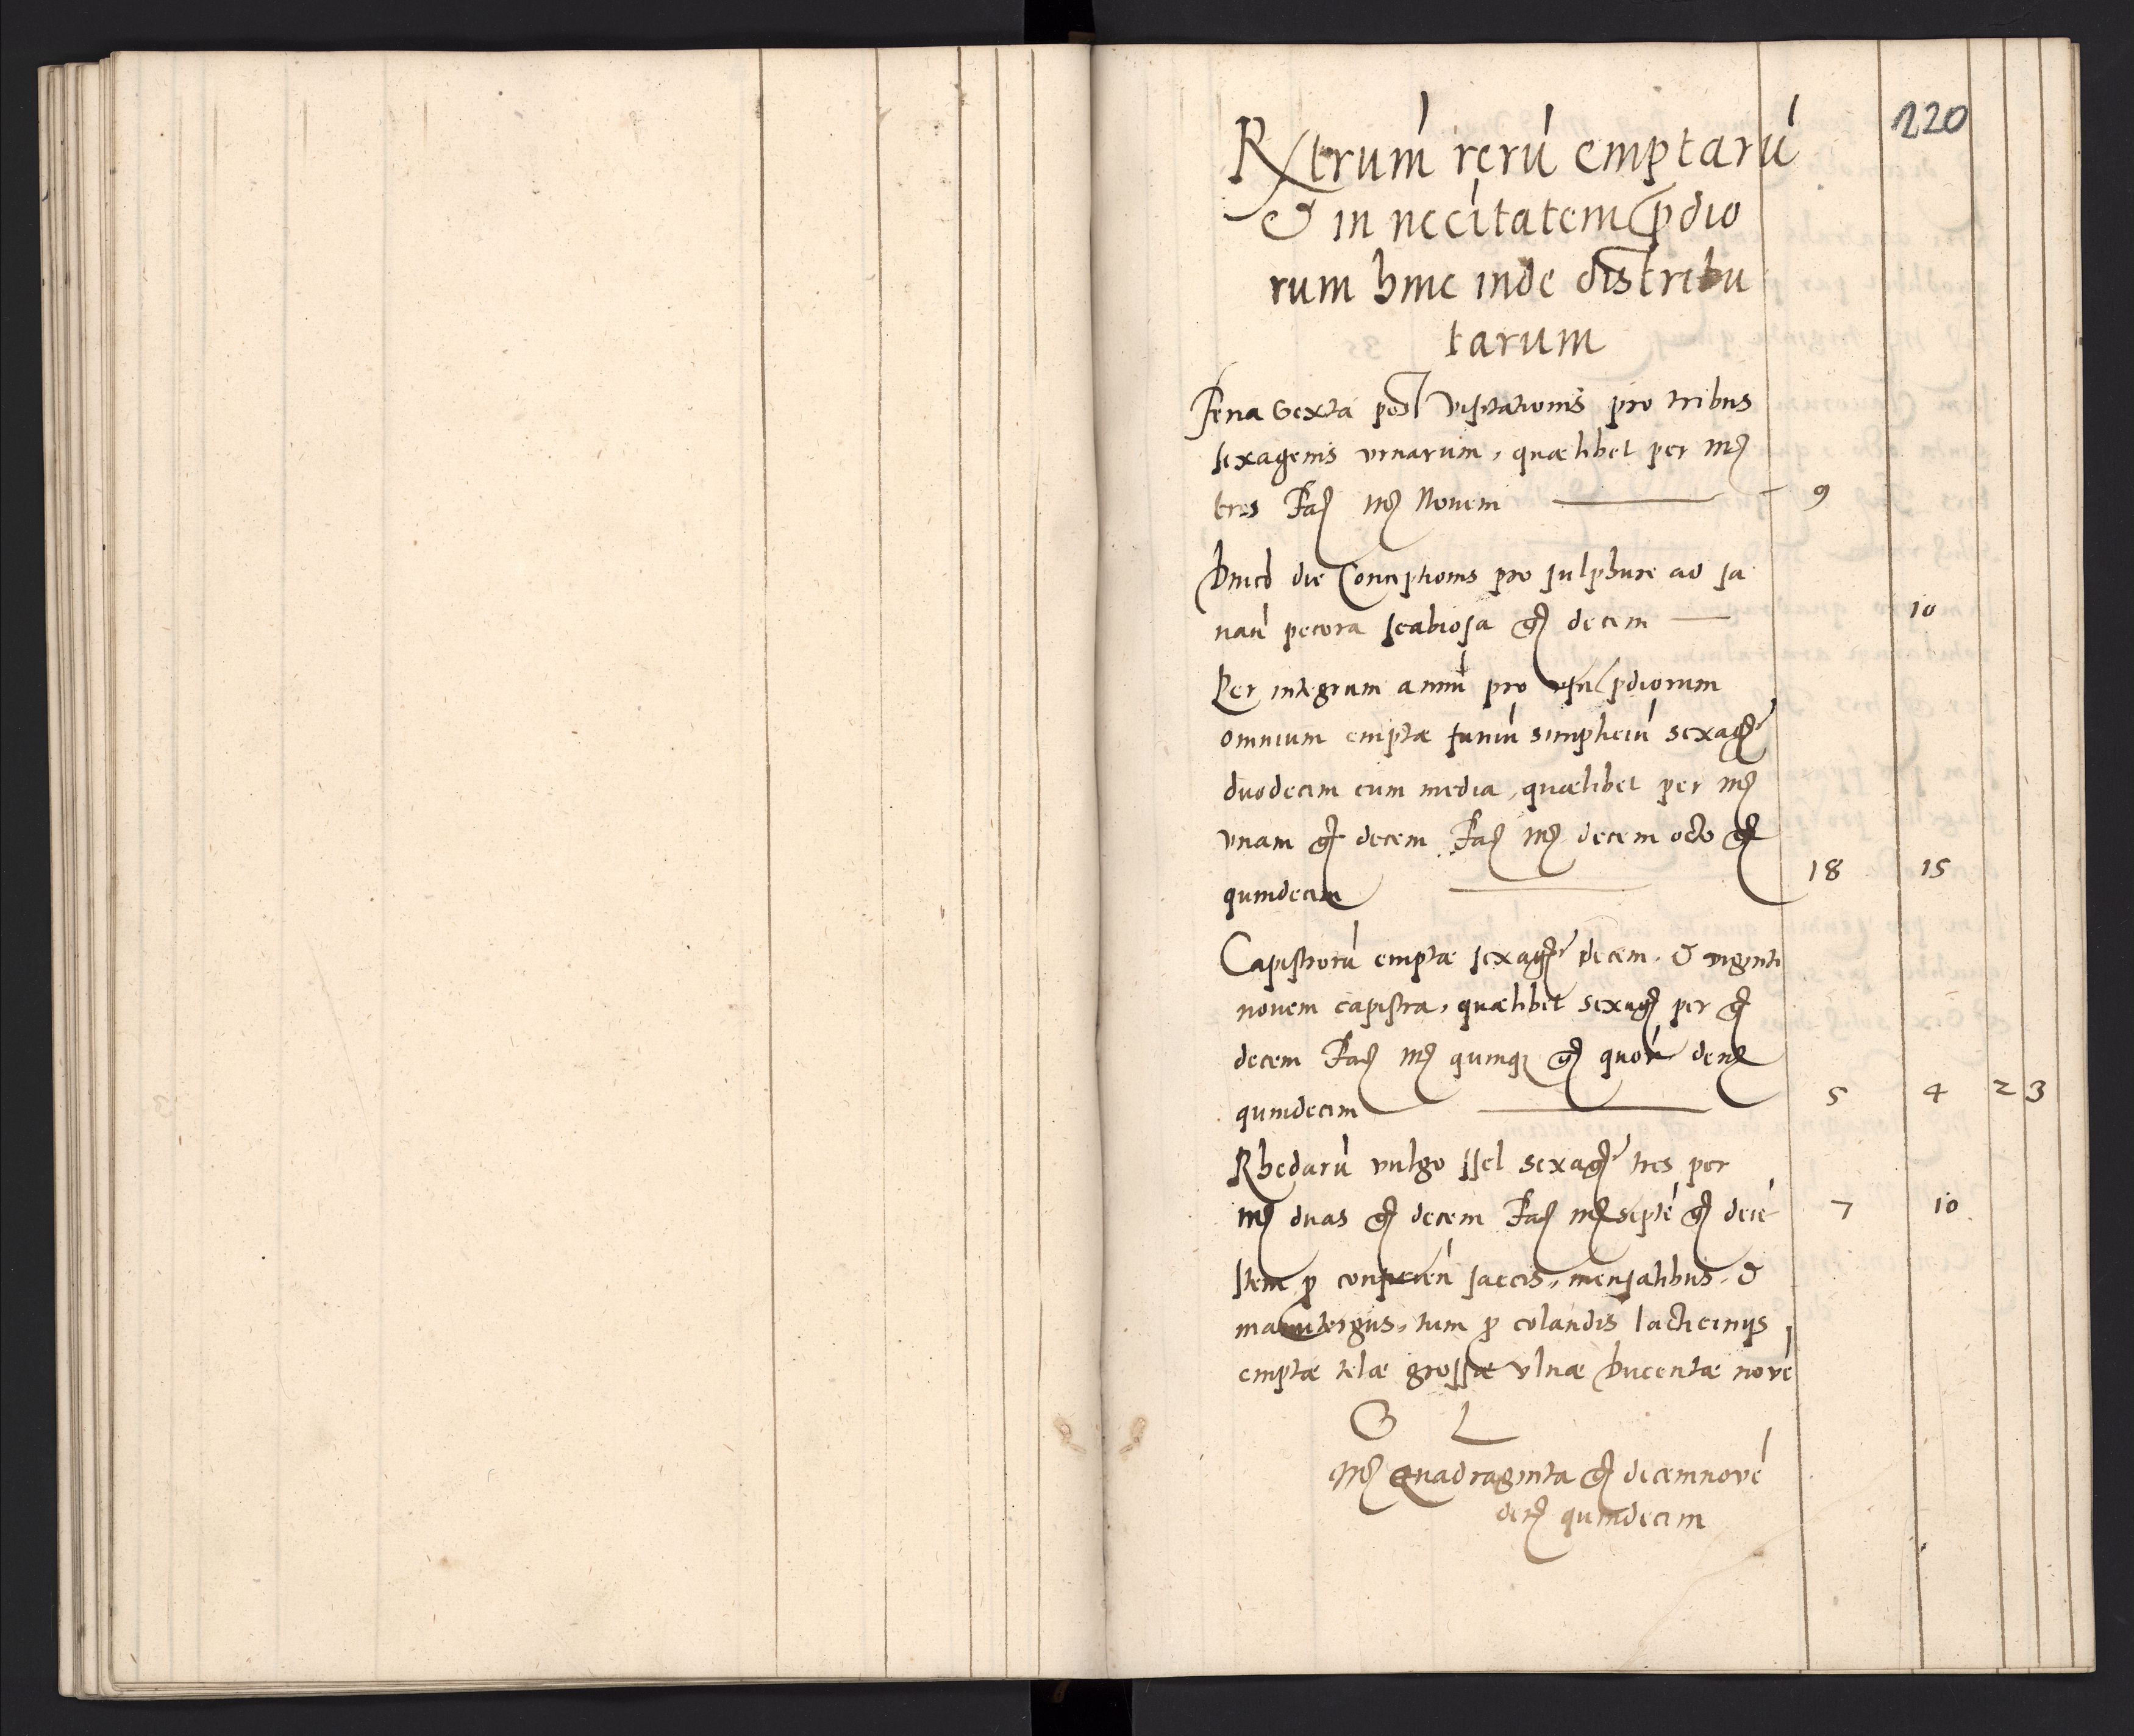 220
Rx̄truḿ rerú emptarú
& in nccitatem p̄dio
rum hinc inde distribu
tarum
Feria Sexta post Visitationis pro tribus
sexagenis urnarum, quælibet per mȝ
tres Faȝ mȝ Novem — 9
die Conceptionis pro sulphure ad sa
nań pecora scabiosa gȝ decem — 10
Per integrum annú pro usu p̄diorum
omnium emptæ funiú simpliciú sexagȝ
duodecim cum media, quælibet per mȝ
vnam gȝ decem Faȝ mȝ decem octo gȝ
quindecim — 18 15
Capistrorú emptæ sexagȝ decem, & viginti
novem capistra, quælibet sexagȝ per gȝ
decem Faȝ mȝ quinqȝ gȝ quor denȝ
quindecim — 5 4 2 3
Rhedarú vulgo ssel sexagȝ tres per
mȝ duas gȝ decem Faȝ mȝ septé gȝ decé 7 10
Item p saccis, mensalibus, &
manutergiis, tum p colandis lacticinijs
emptæ telæ grossæ vlnæ Ducentæ nové
S L
Mȝ Quadraginta gȝ decemnové
denȝ quindecim